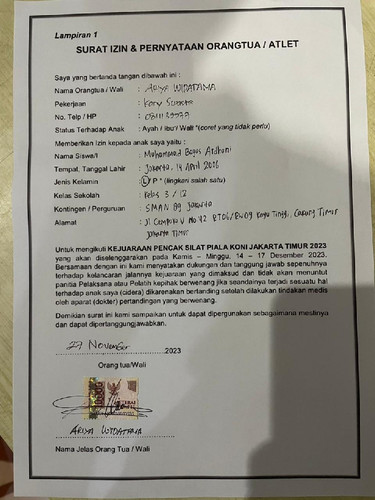 Lampiran 1
SURAT IZIN & PERNYATAAN ORANGTUA / ATLET
Saya yang bertanda tangan dibawah ini :
Nama Orangtua / Wali : ARIYA WIDATAMA
Pekerjaan : Kary Swasta
No. Telp / HP :
Status Terhadap Anak : Ayah / Ibu / Wali *(coret yang tidak perlu)
Memberikan izin kepada anak saya yaitu :
Nama Siswa/i : Muhammad Bagus Ardhani
Tempat, Tanggal Lahir : Jakarta, 14 April 2006
Jenis Kelamin : L/ P * (lingkari salah satu)
Kelas Sekolah : Kelas 3 / 12
Kontingen / Perguruan : SMAN 99 Jakarta
Alamat : Jl Cempaka V No 42 RT06/RW09 Kayu Tinggi, Cakung Timur
Jakarta Timur
Untuk mengikuti KEJUARAAN PENCAK SILAT PIALA KONI JAKARTA TIMUR 2023
yang akan diselenggarakan pada Kamis – Minggu, 14 – 17 Desember 2023.
Bersamaan dengan ini kami menyatakan dukungan dan tanggung jawab sepenuhnya
terhadap kelancaran jalannya kejuaraan yang dimaksud dan tidak akan menuntut
panitia Pelaksana atau Pelatih kepihak berwenang jika seandainya terjadi sesuatu hal
terhadap anak saya (cidera) dikarenakan bertanding setelah dilakukan tindakan medis
oleh aparat (dokter) pertandingan yang berwenang.
Demikian surat ini kami sampaikan untuk dapat dipergunakan sebagaimana mestinya
dan dapat dipertanggungjawabkan.
27 November 2023
Orang tua/Wali
ARIYA WIDATAMA
Nama Jelas Orang Tua / Wali